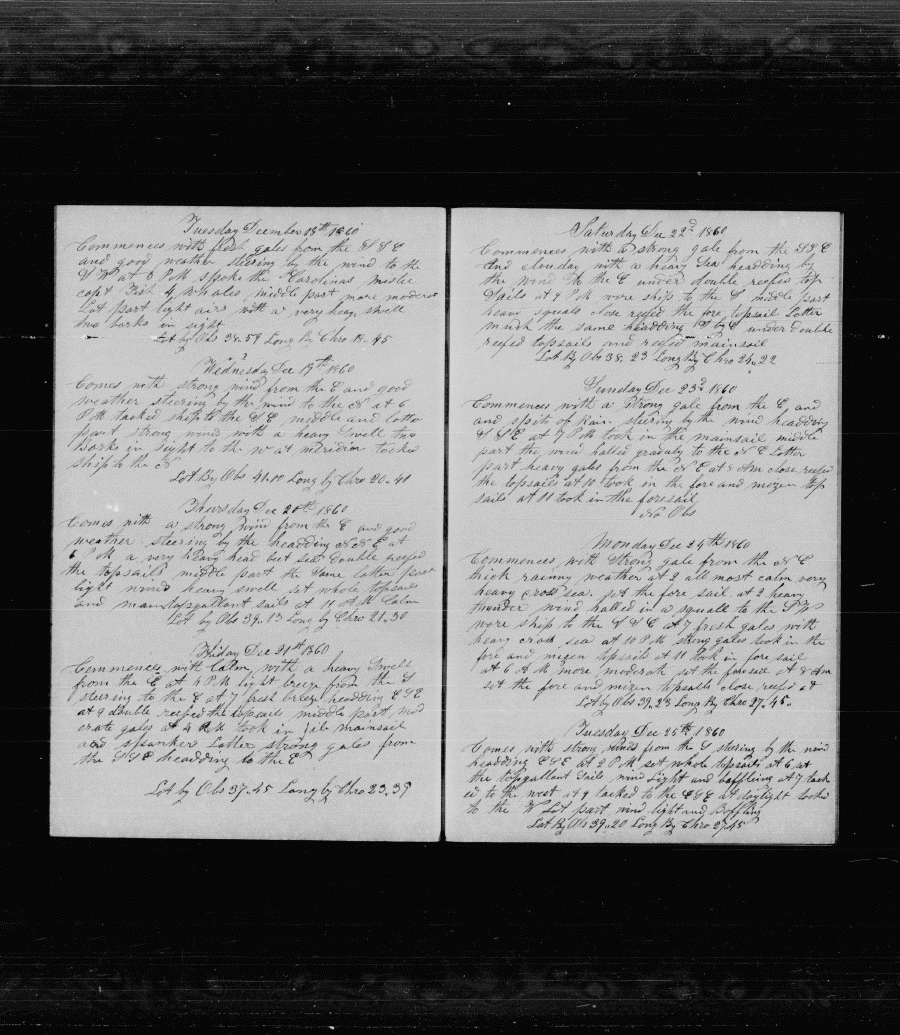 Tuesday December 18th 1860
Commences with fresh gales from the SSE
and good weather steering by the wind to the
SW at 3 PM spoke the Carolina
capt 4 whales middle part more moderat
Lat part light airs with a very heavy swell
two barks in sight
Lat by Obs 38.59 Long By Chro 18.45
Wednesday Dec 19th 1860
Comes with strong wind from the E and good
weather steering by the wind to the N at 6
P M tacked ship to the SE middle and latter
part strong wind with a heavy swell two
Barks in sight to the W at meridian tacked
ship to the N
Lat By Obs Long by Chro 20.41
Thursday Dec 20th 1860
Comes with a strong wind from the E and good
weather steering by the headding NNE at
6 P M a very head sea double reefed
the topsails middle part the same latter part
light wind heavy swell set whole topsails
and maintopgallant sails at 11 A M Calm
Lat by Obs 39.13 Long by Chro 21.30
Friday Dec 21st 1860
Commences with calm with a heavy swell
from the E at 4 PM light breze from the S
steering to the E at 7 fresh breze headding ESE
at 9 double reefed the topsails middle part mod
erate gales at 4 took in jib mainsail
and spanker Latter strong gales from
the SSE headding to the E
Lat by Obs 37.45 Long by Chro 23.39
Saturday Dec 22nd 1860
Commences with a strong gale from the SSE
and clouday with a heavy sea headding by
the wind to the E under double reefed top
sails at 9 PM wore ship to the S middle part
heavy squals close reefd the fore topsail Latter
much the same headding by E under double
reefed topsails and reefed mainsail
Lat By Obs 38.23 Long By Chro 24.22
Sunday Dec 23rd 1860
Commences with a strong gale from the E and
and spits of Rain steering by the wind headding
SSE at 7 PM took in the mainsail middle
part the wind halled gradualy to the NE Latter
part heavy gales from the NE at 8 Am close reefed
the topsails at 10 took in the fore and mizen top
sails at 11 took in the foresail
No Obs
Monday Dec 24th 1860
Commences with strong gale from the NE
thick rainny weather at 2 all most calm very
heavy cross sea. set the fore sail at 2 heavy
thunder wind halled in a squall to the SW
wore ship to the SSE at 7 fresh gales with
heavy cross sea at 10 PM strong gales took in the
fore and mizen topsails at 11 took in fore sail
at 6 A M more moderate set the foresail at 8 Am
set the fore and mizen topsails close reefd at
Lat by Obs 39.23 Long By Chro 27.45
Tuesday Dec 25th 1860
Comes with strong winds from the S steering by the wind
headding ESE at 2 PM set whole topsails at 6 at
the topgallant sails wind Light and baffleing at 7 tack
ed to the west at 9 tacked to the ESE at daylight tacked
to the W Lat part wind light and Baffling
Lat By Obs 39.20 Long By Chro 27.45